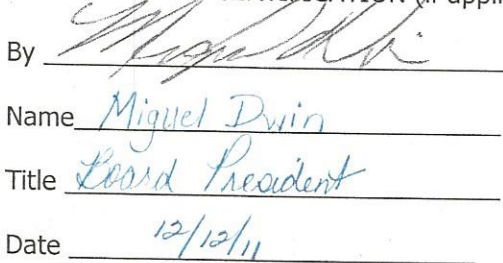 (if appli
By
Name Miguel Dwin
Title Board President
Date 12/12/11